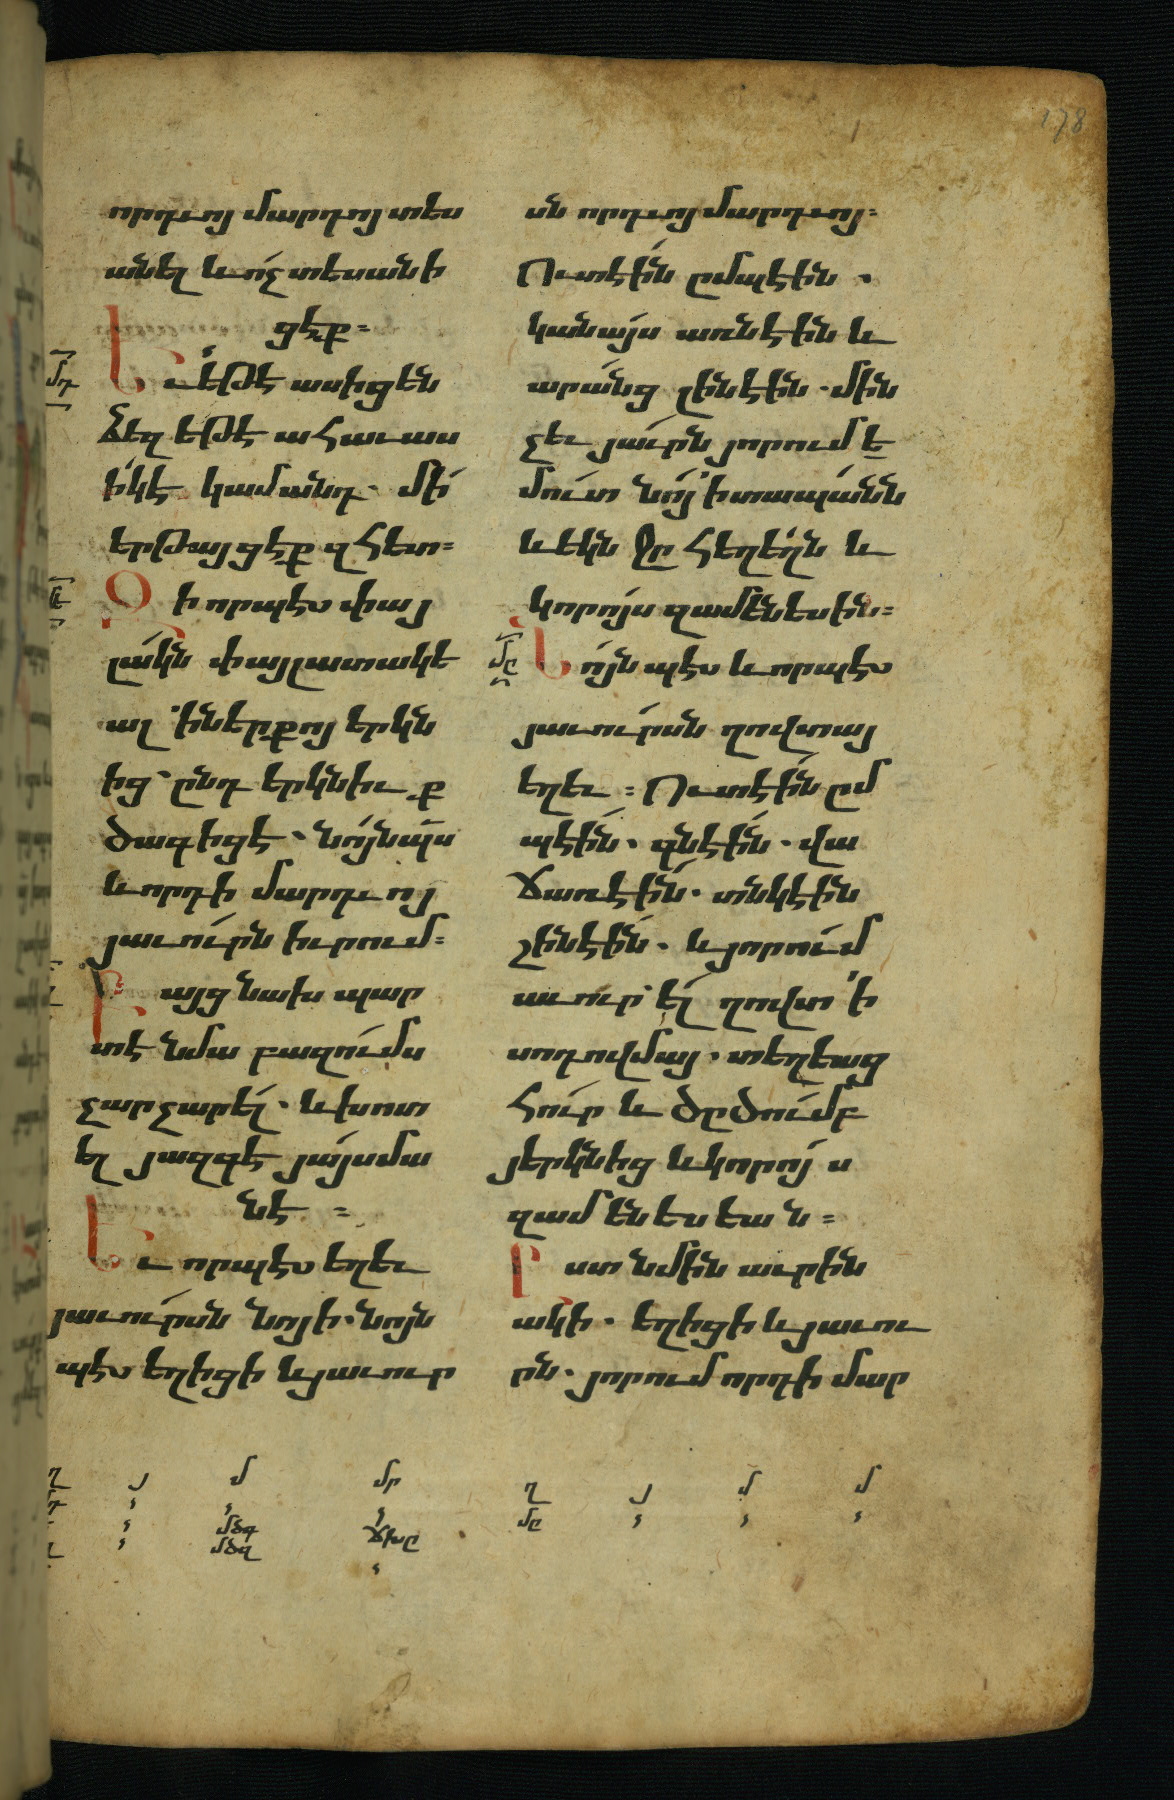 178
որդւոյ մարդոյ տես
անել և ոչ տեսանի
ցէք։
Եւ եթէ ասիցեն
ձեզ եթէ ահաւաս
իկէ կամ անդ. մի
երթայցէք զհետ։
Զի որպէս փայ
լակն փայլատակե
ալ ՚ի ներքոյ երկն
ից ընդ երկնիւք
ծագիցէ. նոյնպս
և որդի մարդւոյ
յաւուրն իւրում։
Բայց նախ պար
տէ նմա բազումս
չարչարել. և խոտ
ել յազգէ յայսմա
նէ ։
Եւ որպէս եղեւ
յաւուրսն նոյի. նոյն
պէս եղիցի և յաւուր
սն որդւոյ մարդւոյ։
Ուտէին ըմպէին .
կանայս առնէին և
արանց լինէին. մին
չեւ յաւրն յորում ե
մուտ նոյ ՚ի տապանն
և եկն ջր հեղեղն և
կորոյս զամենեսին։
մը
Նոյնպէս և որպէս
յաւուրսն ղովտայ
եղեւ ։ Ուտէին ըմ
պէին. գնէին. վա
ճառէին. տնկէին
շինէին. և յորում
աւուր եl ղովտ ՚ի
սոդովմայ. տեղեաց
հուր և ծըծումբ
յերկնից և կորոյս
զամենեսեան։
Ըստ նմին աւրին
ակի. եղիցի և յաւու
րն. յորում որդի մար
ղ յ մ մր
մծգ ճխը
մծզ
ղ յ մ մ
մը